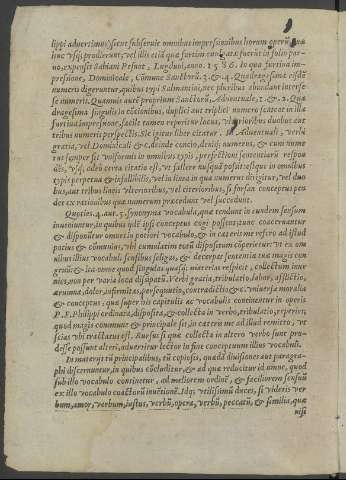 lippi aduertimus, sicut subseruit omnibus impressionibus horum operũ, quæ
hinc vsq; prodierunt, vel illis etiã quæ furtim excusæ fuerũt in folio par-
uo, expensis Sabiani Pesnot, Lugduni, anno. 1586. In qua furtina im-
pressione, Dominicale, Cõmune Sanctorũ. 3. & 4. Quadragesimæ eisdẽ
numeris digeruntur, quibus typi Salmantini, nec pluribus abundant interse-
se numeris. Quamuis autẽ proprium Sanctorũ, Aduentuale, 1. & 2. Qua
dragesima singulis in cõcionibus, duplici aut triplici numero scateat in illa
furtiua impressione, facile tamen reperitur locus, vlterioribus duobus aut
tribus numeris perspectis. Sic igitur liber citatur. In Aduentuali, verbi
gratia, vel Dominicali &c. deinde concio, deniq; numerus, & cum nume
rus semper sit vniformis in omnibus typis, perspectioni sententiarũ respon
dens, vsq; adeo certa citatio est, vt fallere nusquã possit: estque in omnibus
typis perpetua & infallibilis, vel in linea in qua numerus dirigitur, vel duo
bus, aut tribus lineis vlterioribus, vel citerioribus, si forsan conceptus pen
det ex rationibus quæ numerum præcedunt vel succedunt.
Quoties. 4. aut. 5. synonyma vocabula, quæ tendunt in eundem sensum
inueniuntur, in quibus ijdẽ ipsi conceptus cogi possent, tunc coaceruantur
& disponũtur omnes in potiori vocabulo, & in cæteris me refero ad illud
potius & cõmunius, vbi cumulatim eosdẽ dispositum cõperietur: vt ex om
nibus illius vocabuli sensibus seligas, & decerpas sententiã tuæ magis con
gruã: & ita omne quod singulas quasq; materias respicit, collectum inue
nies, non per varia loca dissipatũ. Verbi gratia, tribulatio, labor, afflictio,
ærumna, dolor, infirmitas, persequutio, contradictio &c. vniuersa moralia
& conceptus, qui super his capitulis ac vocabulis continentur in operib.
P. F. Philippi ordinata, disposita, & collecta in verbo, tribulatio, reperies,
quod magis commune & principale sit, in cæteris me ad illud remitto, vt
scias vbi tractatur est. Rursus si quæ collecta in altero verbo sunt pro-
desse possunt alteri, aduertitur lector in fine conceptuum illius vocabuli.
In materijs tũ principalibus, tũ copiosis, quædã diuisiones aut paragra-
phi discernuntur, in quibus cõcluditur, & ad quæ reducitur id omne, quod
sub illo vocabulo continetur, ad meliorem ordinẽ, & faciliorem sensuũ
ex illo vocabulo coactorũ inuẽtionẽ. Idq; vtilissimũ duces, si videris ver
bum, amor, verbum, iustus, verbũ, opera, verbũ, peccatũ, & similia, quæ
nisi